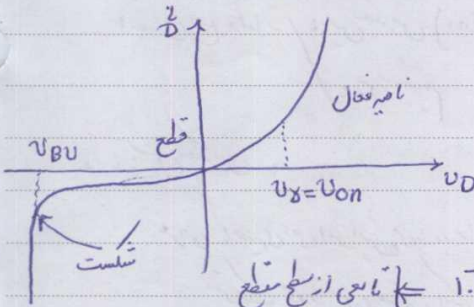 i_D
ناحیه فعال
قطع
v_BV
v_γ = v_on
v_D
شکست
⇐ تابعی از سطح مقطع